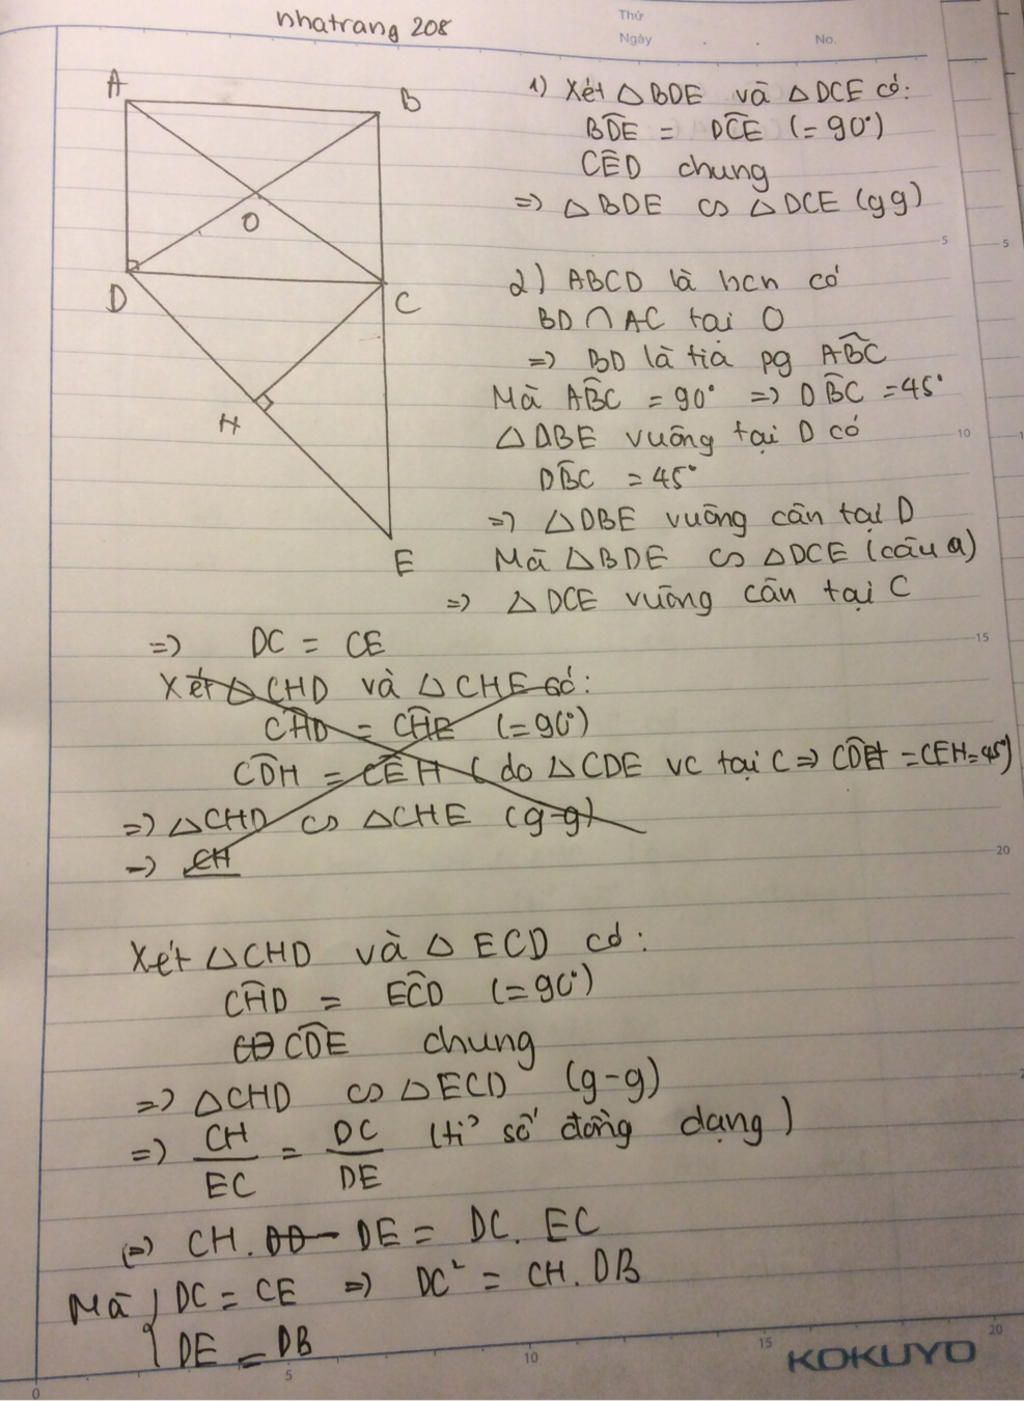 nhatrang 208
Thứ
Ngày . . No.
A
B
O
D
C
H
E
1) Xét △BDE và △DCE có:
BD̂E = DĈE (=90°)
CÊD chung
=> △BDE ∽ △DCE (gg)
2) ABCD là hcn có
BD ∩ AC tại O
=> BD là tia pg AB̂C
Mà AB̂C = 90° => DB̂C = 45°
△DBE vuông tại D có
DB̂C = 45°
=> △DBE vuông cân tại D
Mà △BDE ∽ △DCE (câu a)
=> △DCE vuông cân tại C
=> DC = CE
Xét △CHD và △CHE có:
CĤD = CĤE (=90°)
CD̂H = CÊH (do △CDE vc tại C => CD̂E = CEH=45°)
=> △CHD ∽ △CHE (g-g)
=> CH
Xét △CHD và △ECD có:
CĤD = EĈD (=90°)
CD̂E chung
=> △CHD ∽ △ECD (g-g)
=> CH/EC = DC/DE (tỉ số đồng dạng)
(=) CH. DE = DC. EC
Mà { DC = CE => DC² = CH. DB
DE = DB
5
10
15
20
5
0
5
10
15
20
KOKUYO